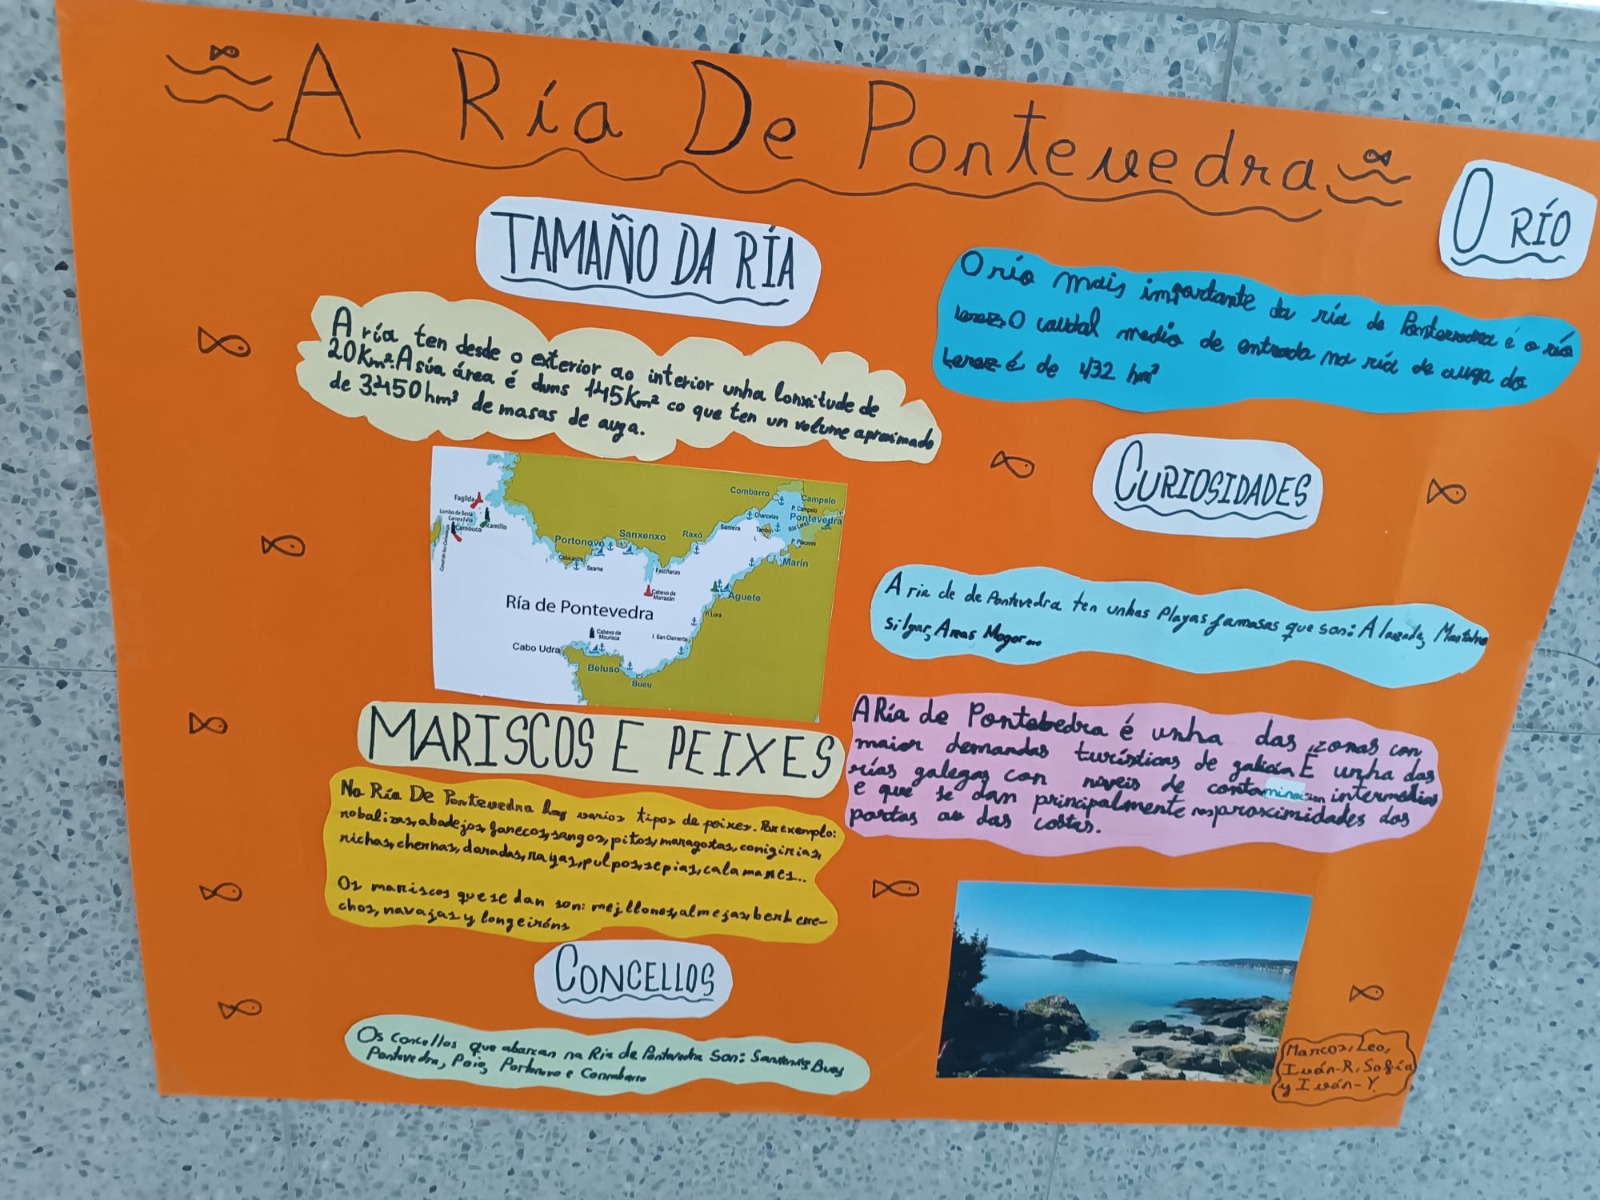 A Ría De Pontevedra
TAMAÑO DA RÍA
A ría ten desde o exterior ao interior unha lonxitude de
20Km². A súa área é duns 145Km² co que ten un volume aproximado
de 3.450hm³ de masas de auga.
Fagilda
Camouco
Camillo
Combarro
Campelo
P. Campelo
Pontevedra
Chancelas
Tambo
Río Lérez
Samieira
P. Placeres
Marín
Portonovo
Sanxenxo
Raxó
Cabicastro
Seame
Festiñanzo
Cabezo de
Morrazán
Aguete
P. Loira
Ría de Pontevedra
Cabezo de
Mourisca
I. San Clemente
Cabo Udra
Beluso
Bueu
MARISCOS E PEIXES
Na Ría De Pontevedra hay varios tipos de peixes. Por exemplo:
robalizas, abadejos, fanecos, sangos, pitos, maragotas,
richas, chernas, doradas, rayas, pulpos, sepias, calamares...
Os mariscos que se dan son: mejllones, almejas, berberre-
chos, navajas y longeiróns
CONCELLOS
Os concellos que abarcan na Ria de Pontevedra Son: Bueu
Pontevedra, Poio, Portonovo e Combarro
O RÍO
O río mais importante da ría de Pontevedra é o río
Lerez. O caudal medio de entrada na ría de auga do
Lerez é de 432 hm³
CURIOSIDADES
A ria de de Pontevedra ten unhas Playas famosas que son: A lanzada,
Silgar, Areas Mogor...
A Ría de Pontebedra é unha das zonas con
maior demandas turísticas de galicia É unha das
rías galegas con niveis de contaminacion intermedias
e que se dan principalmente nas proximidades dos
portos ao das costas.
Marcos, Leo,
Iván-R, Sofía
y Iván-Y.